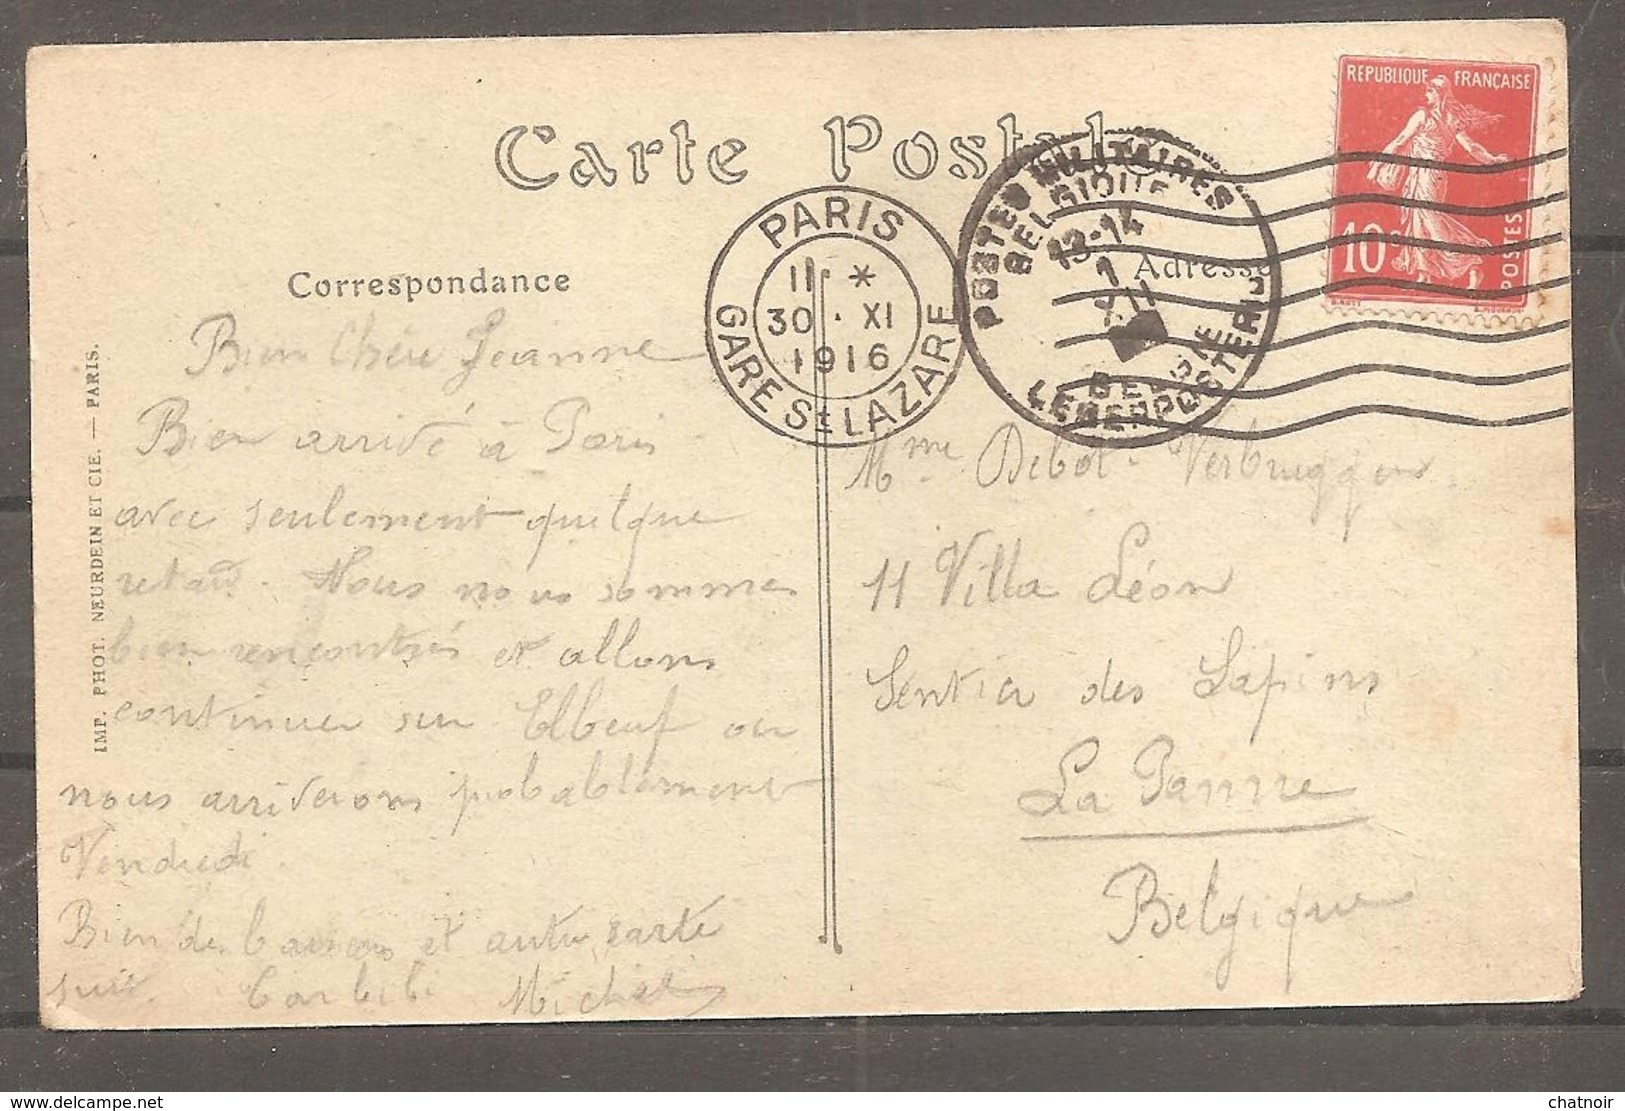 Carte Postale
REPUBLIQUE FRANÇAISE
10c
POSTES
PARIS
11 *
30 · XI
1916
GARE St LAZARE
POSTES MILITAIRES
BELGIQUE
13-14
BELGIE
LEGERPOSTERIJ
Correspondance
Adresse
IMP. PHOT. NEURDEIN ET CIE. — PARIS.
Bien Chère Jeanne
Bien arrivé à Paris
avec seulement quelque
retard. Nous nous sommes
bien rencontrés et allons
continuer sur Elbeuf ou
nous arriverons probablement
Vendredi.
Bien de baisers et autre carte
suit. Michel
Mme Debot-Verbruggen
11 Villa Léon
Sentier des Lapins
La Panne
Belgique
chatnoir
www.delcampe.net